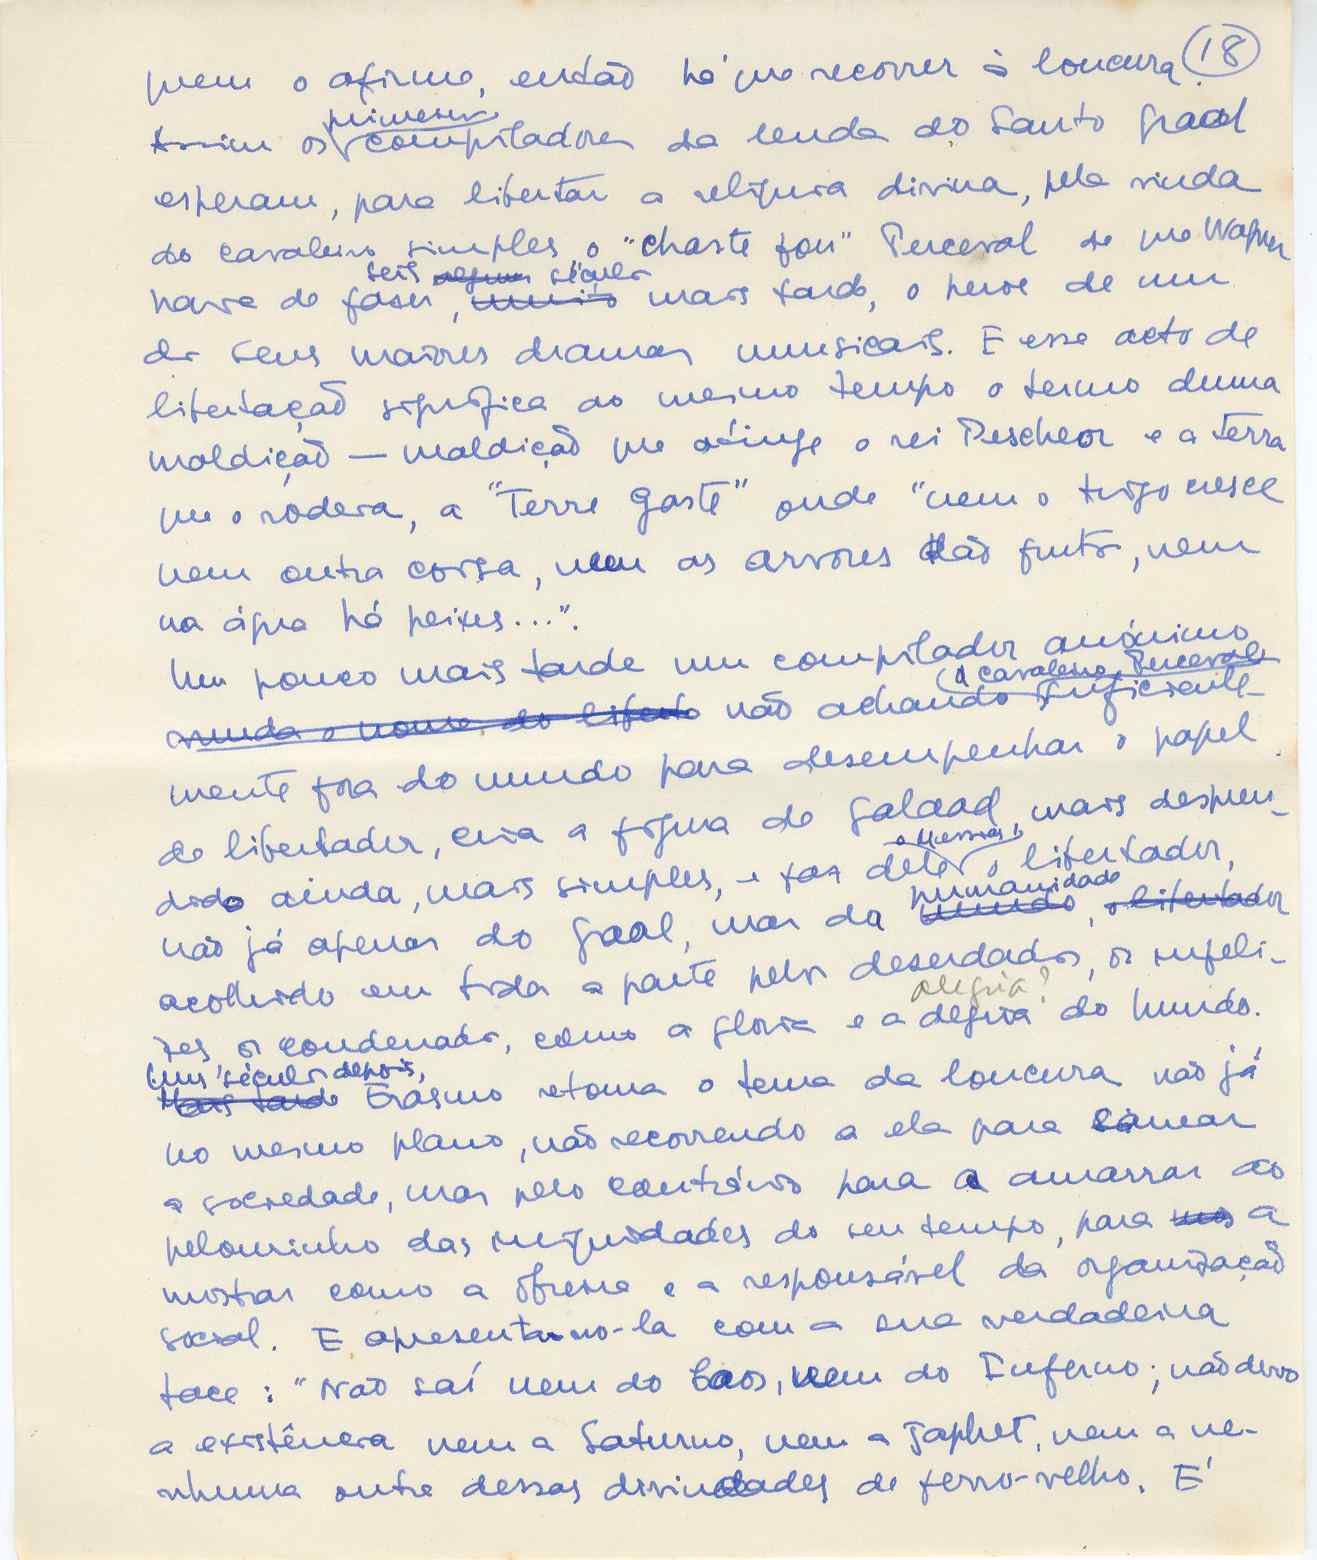 18
quem o afirme, então há que recorrer à loucura.
primeiros
Assim os compiladores da lenda do Santo Graal
esperam, para libertar a relíquia divina, pela vinda
do cavaleiro simples, o "chaste fou" Perceval de que Wagner
seis alguns séculos
havia de fazer, muito mais tarde, o heroi de um
dos seus maiores dramas musicais. E esse acto de
libertação significa ao mesmo tempo o termo duma
maldição — maldição que atinge o rei Pescheor e a Terra
que o rodeia, a "Terre Gaste" onde "nem o trigo cresce
nem outra coisa, nem as arvores dão frutos, nem
na água há peixes...".
Um pouco mais tarde um compilador anónimo
o cavaleiro Perceval
muda o nome do liberto não achando suficiente-
mente fora do mundo para desempenhar o papel
de libertador, cria a figura de Galaad, mais despren-
o Messias,
dido ainda, mais simples, e faz dele o libertador,
humanidade
não já apenas do Graal, mas da mundo, o libertador
acolhido em toda a parte pelos deserdados, os infeli-
alegria?
zes, os condenados, como a gloria e a alegria do mundo.
Uns séculos depois,
Mais tarde Erasmo retoma o tema da loucura não já
no mesmo plano, não recorrendo a ela para sanear
a sociedade, mas pelo contrário para a amarrar ao
pelourinho das iniquidades do seu tempo, para nos a
mostrar como a obreira e a responsável da organização
social. E apresenta-no-la com a sua verdadeira
face: "Não saí nem do Caos, nem do Inferno; não devo
a existência nem a Saturno, nem a Japhet, nem a ne-
nhuma outra dessas divindades de ferro-velho. E'